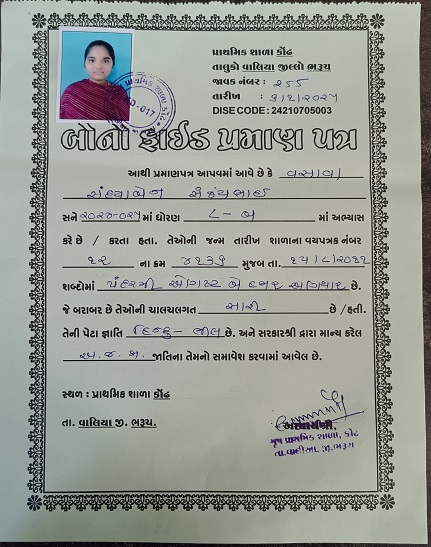 પ્રાથમિક શાળા કોંઢ
તાલુકો વાલિયા જીલ્લો ભરૂચ
જાવક નંબર : ૨૯૬
તારીખ :
DISE CODE : 24210705003
બોનાફાઈડ પ્રમાણ પત્ર
આથી પ્રમાણપત્ર આપવમાં આવે છે કે વસાવા
સંધ્યાબેન સંજયભાઇ
સને ૨૦૨૪-૦૨૫ માં ધોરણ ૮-બ માં અભ્યાસ
કરે છે / કરતા હતા. તેઓની જન્મ તારીખ શાળાના વયપત્રક નંબર
૧૨ ના ક્રમ ૪૬૩૬ મુજબ તા. ૧૫/૮/૨૦૧૧
શબ્દોમાં પંદરમી ઓગષ્ટ બે હજાર અગિયાર છે.
જે બરાબર છે તેઓની ચાલચલગત સારી છે /હતી.
તેની પેટા જ્ઞાતિ હિન્દુ-ભીલ છે. અને સરકારશ્રી દ્રારા માન્ય કરેલ
અ.જ.જા. જાતિના તેમનો સમાવેશ કરવામાં આવેલ છે.
સ્થળ : પ્રાથમિક શાળા કોંઢ
તા. વાલિયા જી. ભરૂચ.
આચાર્યશ્રી.
મુખ્ય પ્રાથમિક શાળા, કોંઢ
તા.વાલીયા, જી.ભરૂચ